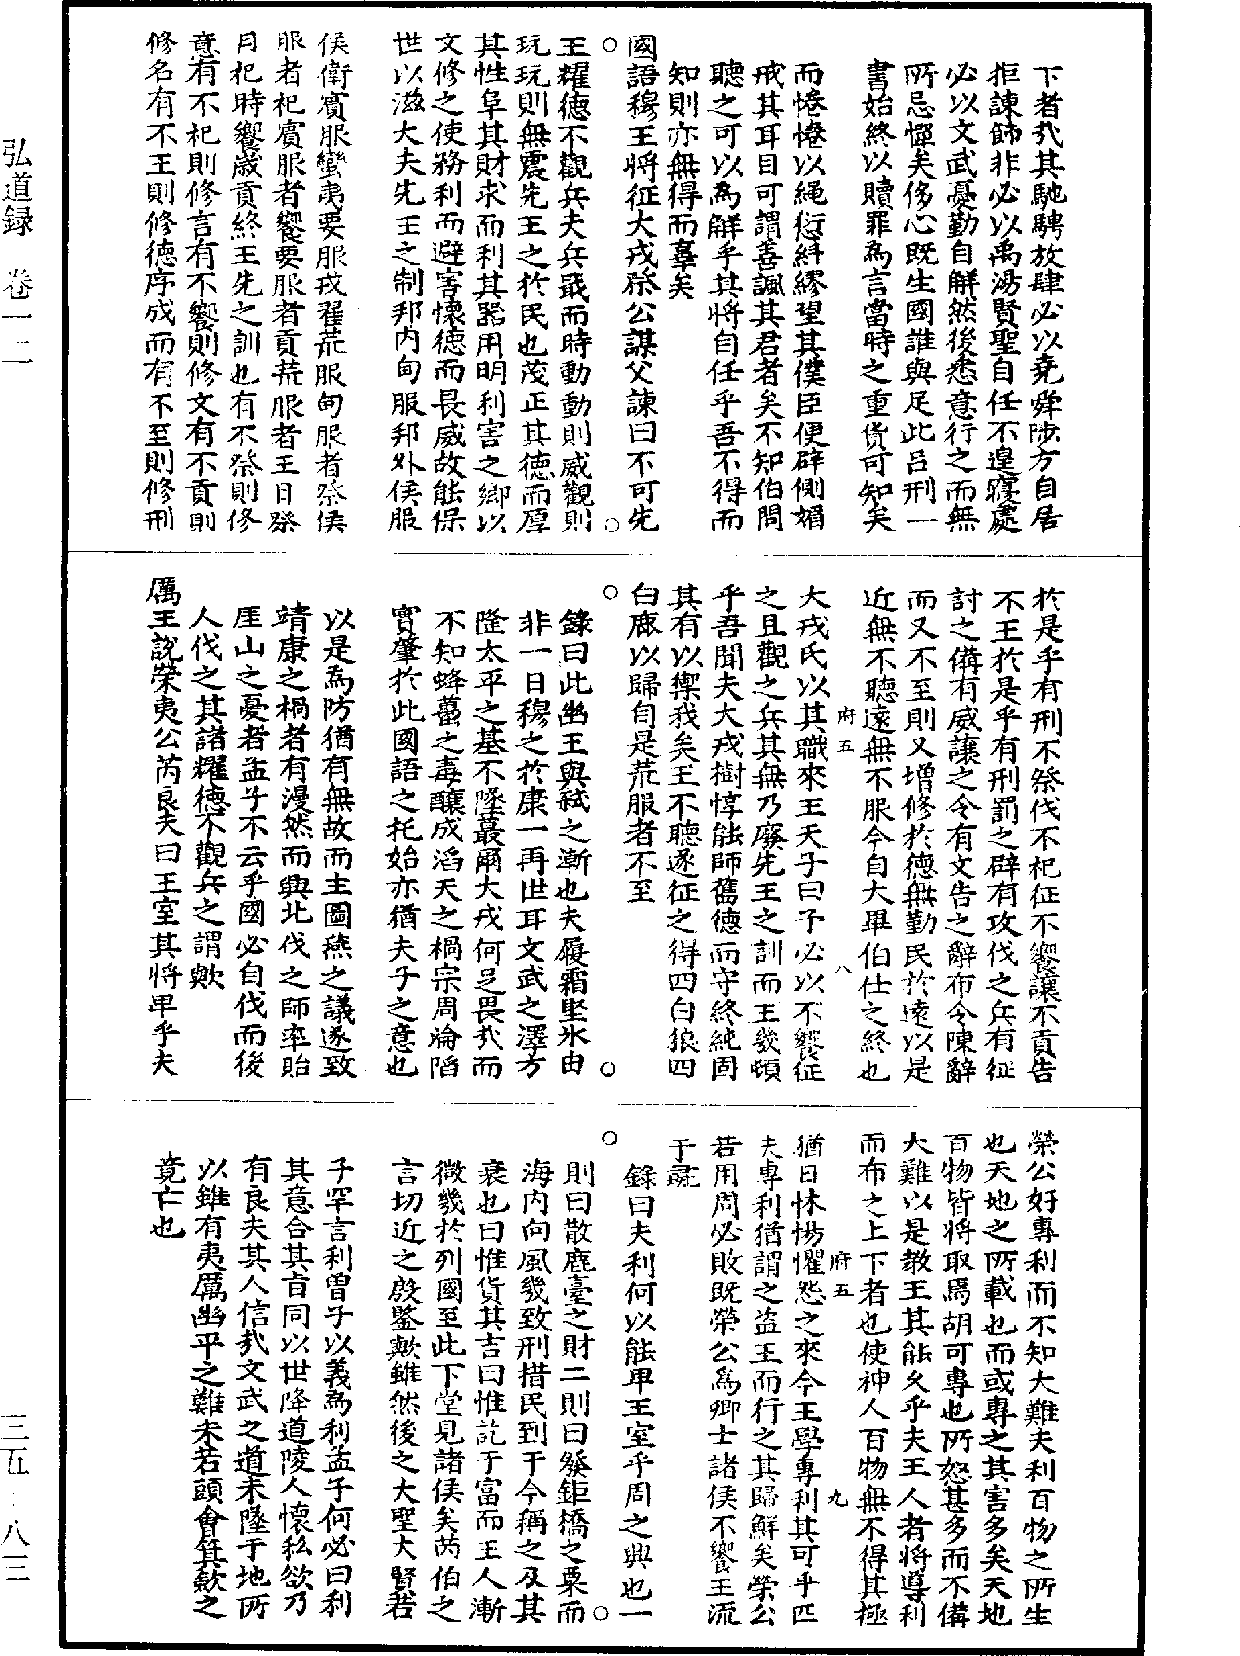 弘道録　卷一二
三五·八三
下者㢤其馳騁放肆必以堯舜陟方自居
拒諫飾非必以禹湯賢聖自任不遑寢處
必以文武憂勤自解然後悉意行之而無
所忌憚矣侈心既生國誰與足此吕刑一
書始終以贖罪為言當時之重貨可知矣
而惓惓以繩愆糾繆望其僕臣便辟側媚
戒其耳目可謂善諷其君者矣不知伯冏
聽之可以為解乎其將自任乎吾不得而
知則亦無得而臺矣
國語穆王將征犬戎祭公謀父諫曰不可先
王耀德不觀兵夫兵戢而時動動則威觀則
玩玩則無震先王之於民也茂正其德而厚
其性阜其財求而利其器用明利害之鄉以
文修之使務利而避害懷德而畏威故能保
世以滋大夫先王之制邦内甸服邦外侯服
侯衛賓服蠻夷要服戎翟荒服甸服者祭侯
服者祀賓服者饗要服者貢荒服者王日祭
月祀時饗歲貢終王先之訓也有不祭則修
意有不祀則修言有不饗則修文有不貢則
修名有不王則修德序成而有不至則修刑
於是乎有刑不祭伐不祀征不饗讓不貢告
不王於是乎有刑罰之辟有攻伐之兵有征
討之備有威讓之令有文告之辭布令陳辭
而又不至則又增修於德無勤民於遠以是
近無不聽遠無不服今自大畢伯仕之終也
府五　八
犬戎氏以其職來王天子曰予必以不饗征
之且觀之兵其無乃廢先王之訓而王幾頓
乎吾聞夫犬戎樹惇能師舊德而守終純固
其有以禦我矣王不聽遂征之得四白狼四
白鹿以歸自是荒服者不至
錄曰此幽王與弒之漸也夫履霜堅冰由
非一日穆之於康一再世耳文武之澤方
隆太平之基不墜蕞爾犬戎何足畏㢤而
不知蜂蠆之毒釀成滔天之禍宗周淪陷
實肇於此國語之托始亦猶夫子之意也
以是為防猶有無故而主圖燕之議遂致
靖康之禍者有漫然而興北伐之師率貽
厓山之憂者孟子不云乎國必自伐而後
人伐之其諸耀德不觀兵之謂歟
厲王說榮夷公芮良夫曰王室其將卑乎夫
榮公好專利而不知大難夫利百物之所生
也天地之所載也而或專之其害多矣天地
百物皆將取焉胡可專也所怒甚多而不備
大難以是教王其能久乎夫王人者將導利
而布之上下者也使神人百物無不得其極
府五　九
猶日怵惕懼怨之來今王學專利其可乎匹
夫專利猶謂之盜王而行之其歸鮮矣榮公
若用周必敗既榮公為卿士諸侯不饗王流
于彘
錄曰夫利何以能卑王室乎周之興也一
則曰散鹿臺之財二則曰發鉅橋之粟而
海内向風幾致刑措民到于今稱之及其
衰也曰惟貨其吉曰惟訖于富而王人漸
微幾於列國至此下堂見諸侯矣芮伯之
言切近之殷鑒歟雖然後之大聖大賢若
子罕言利曾子以義為利孟子何必曰利
其意合其旨同以世降道陵人懷私欲乃
有良夫其人信㢤文武之道未墜于地所
以雖有夷厲幽平之難未若頭會箕歛之
竟亡也